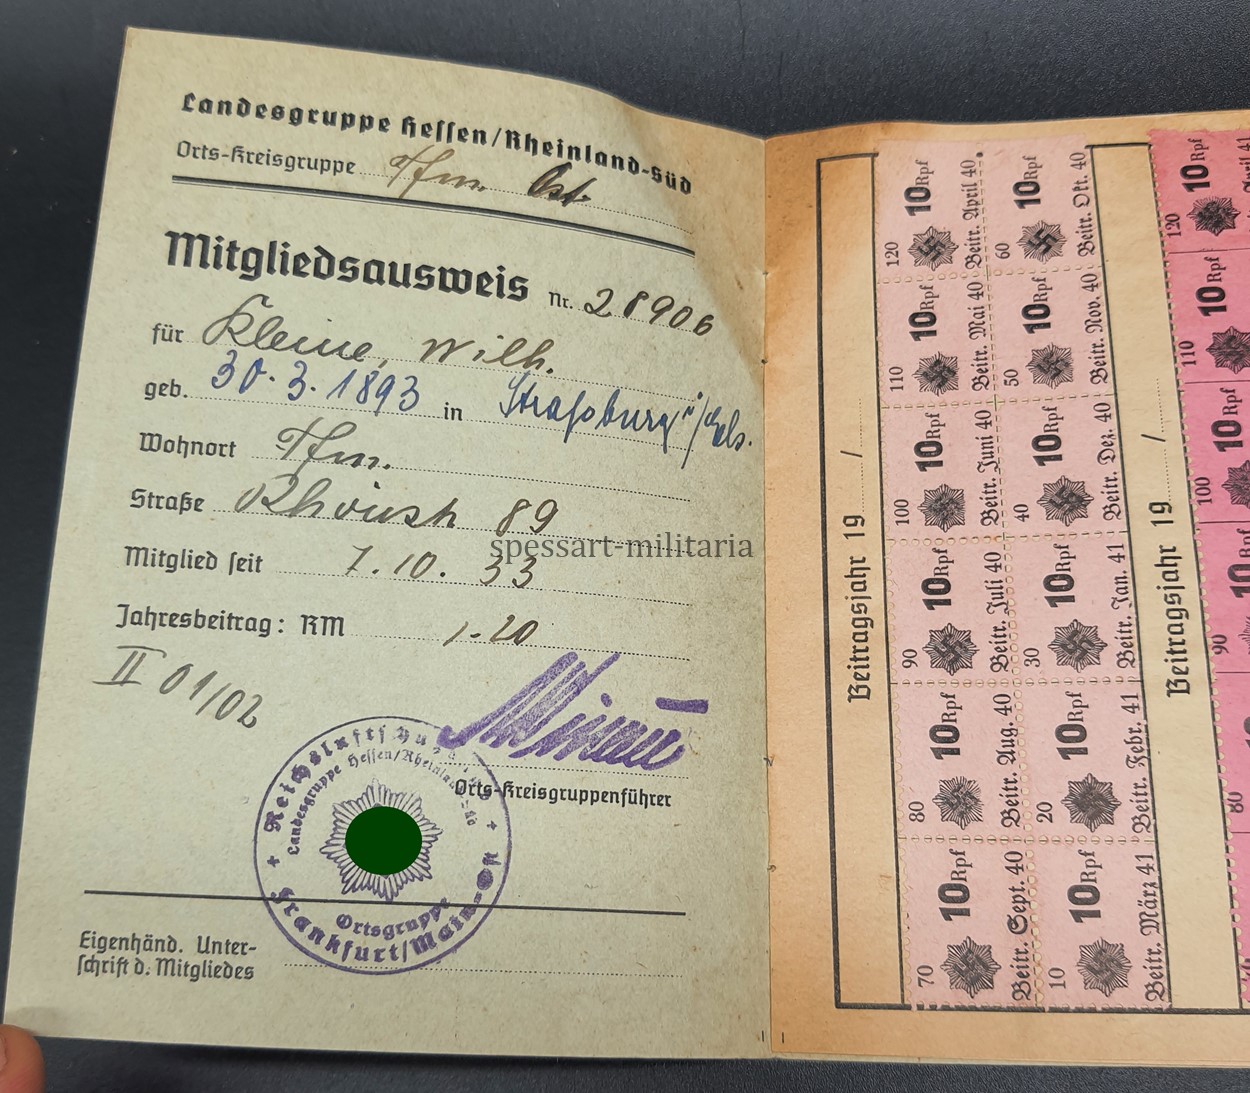 Landesgruppe Hessen/Rheinland-Süd
Orts-Kreisgruppe Ffm. Ost
Mitgliedsausweis Nr. 28906
für Kleine, Wilh.
geb. 30.3.1893 in Straßburg i/Els.
Wohnort Ffm.
Straße 89
Mitglied seit 7.10.33
Jahresbeitrag: RM 1.20
II 01/02
Orts-Kreisgruppenführer
Reichsluftschutzbund
Landesgruppe Hessen/Rheinland-Süd
Ortsgruppe
Frankfurt/Main-Ost
Eigenhänd. Unter-
schrift d. Mitgliedes
spessart-militaria
Beitragsjahr 19 /
120 10 Rpf Beitr. April 40
110 10 Rpf Beitr. Mai 40
100 10 Rpf Beitr. Juni 40
90 10 Rpf Beitr. Juli 40
80 10 Rpf Beitr. Aug. 40
70 10 Rpf Beitr. Sept. 40
60 10 Rpf Beitr. Okt. 40
50 10 Rpf Beitr. Nov. 40
40 10 Rpf Beitr. Dez. 40
30 10 Rpf Beitr. Jan. 41
20 10 Rpf Beitr. Febr. 41
10 10 Rpf Beitr. März 41
Beitragsjahr 19 /
120 10 Rpf April 41
110 10 Rpf
100 10 Rpf
90 10 Rpf
80